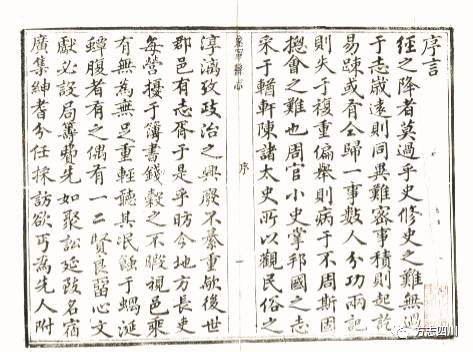 序言
經之降者莫過乎史修史之難無過
于志歲遠則同異難密事積則起訖
易踈或有仝歸一事數人分功兩記
則失于複重偏舉則病于不周斯固
揔會之難也周官小史掌邦國之志
采于輶軒陳諸太史所以觀民俗之
縣志
序
一
淳漓攷政治之興廢不綦重歟後世
郡邑有志胥于是乎昉今地方長吏
每營擾于簿書錢穀之不暇視邑乘
有無為無足重輕聽其泯蝕于蝸涎
蟫腹者有之偶有一二賢良留心文
獻必設局籌費先如聚訟延致名宿
廣集紳耆分任採訪欲丐為先人附
方志四川